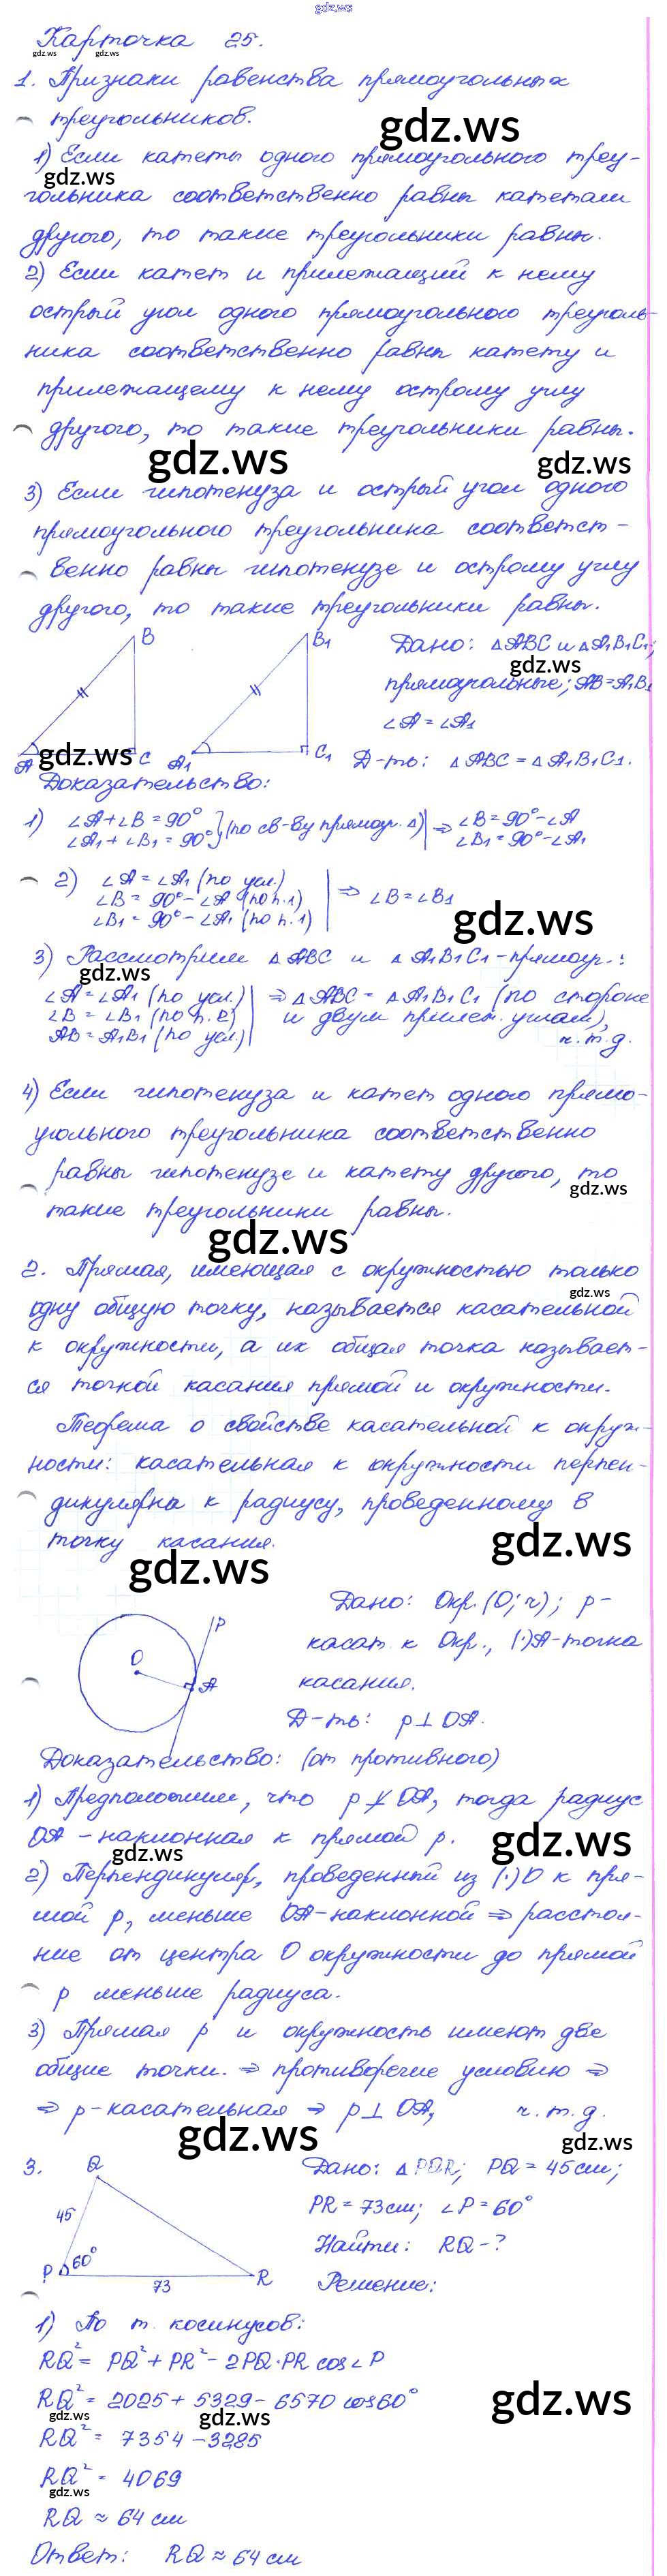 gdz.ws
Карточка 25.
gdz.ws gdz.ws
1. Признаки равенства прямоугольных
треугольников.
gdz.ws
1) Если катеты одного прямоугольного треу-
gdz.ws
гольника соответственно равны катетам
другого, то такие треугольники равны.
2) Если катет и прилежащий к нему
острый угол одного прямоугольного треуголь-
ника соответственно равны катету и
прилежащему к нему острому углу
другого, то такие треугольники равны.
gdz.ws gdz.ws
3) Если гипотенуза и острый угол одного
прямоугольного треугольника соответст-
венно равны гипотенузе и острому углу
другого, то такие треугольники равны.
B B₁ Дано: △ABC и △A₁B₁C₁;
gdz.ws
прямоугольные; AB=A₁B₁
∠A = ∠A₁
A gdz.ws C A₁ C₁ Д-ть: △ABC = △A₁B₁C₁.
Доказательство:
1) ∠A+∠B=90° } (по св-ву прямоуг. △) | ⇒ ∠B=90°-∠A
∠A₁+∠B₁=90° ∠B₁=90°-∠A₁
2) ∠A=∠A₁ (по усл.)
∠B=90°-∠A (по п.1) ⇒ ∠B=∠B₁
∠B₁=90°-∠A₁ (по п.1)
gdz.ws
3) Рассмотрим △ABC и △A₁B₁C₁-прямоуг.:
gdz.ws
∠A=∠A₁ (по усл.) ⇒ △ABC=△A₁B₁C₁ (по стороне
∠B=∠B₁ (по п.2) и двум прилеж. углам),
AB=A₁B₁ (по усл.) ч.т.д.
4) Если гипотенуза и катет одного прямо-
угольного треугольника соответственно
равны гипотенузе и катету другого, то
gdz.ws
такие треугольники равны.
gdz.ws
2. Прямая, имеющая с окружностью только
gdz.ws
одну общую точку, называется касательной
к окружности, а их общая точка называет-
ся точкой касания прямой и окружности.
Теорема о свойстве касательной к окруж-
ности: касательная к окружности перпен-
дикулярна к радиусу, проведенному в
точку касания.
gdz.ws
gdz.ws
Дано: Окр.(O;r); p-
P
касат. к Окр., (·)A-точка
O
A касания.
Д-ть: p⊥OA.
Доказательство: (от противного)
1) Предположим, что p⊥̸OA, тогда радиус
OA - наклонная к прямой p.
gdz.ws gdz.ws
2) Перпендикуляр, проведенный из (·)O к пря-
мой p, меньше OA-наклонной ⇒ расстоя-
ние от центра O окружности до прямой
p меньше радиуса.
3) Прямая p и окружность имеют две
общие точки. ⇒ противоречие условию ⇒
⇒ p-касательная ⇒ p⊥OA, ч.т.д.
gdz.ws gdz.ws
3. Q Дано: △PQR; PQ=45см;
45 PR=73см; ∠P=60°
60° Найти: RQ-?
P R
73 Решение:
1) По т. косинусов:
RQ²=PQ²+PR²-2PQ·PR cos∠P
RQ²=2025+5329-6570 cos60°
gdz.ws gdz.ws gdz.ws
RQ²=7354-3285
RQ²=4069
gdz.ws
RQ≈64см
Ответ: RQ≈64см